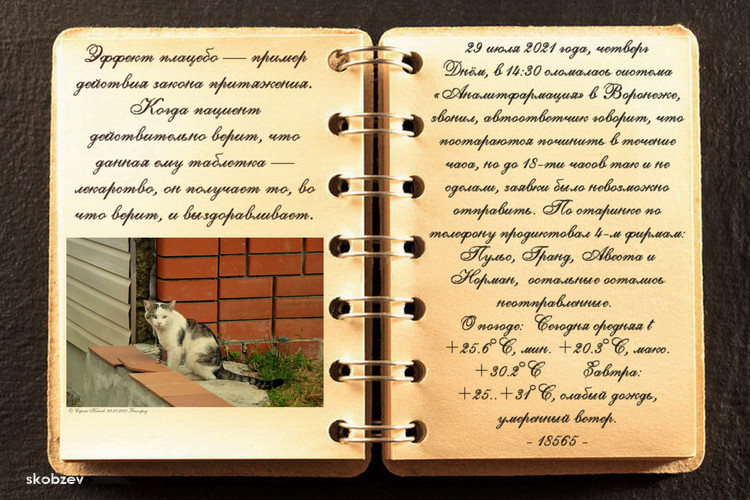 Эффект плацебо — пример
действия закона притяжения.
Когда пациент
действительно верит, что
данная ему таблетка —
лекарство, он получает то, во
что верит, и выздоравливает.
29 июля 2021 года, четверг
Днём, в 14:30 сломалась система
«Аналитфармация» в Воронеже,
звонил, автоответчик говорит, что
постараются починить в течение
часа, но до 18-ти часов так и не
сделали, заявки было невозможно
отправить. По старинке по
телефону продиктовал 4-м фирмам:
Пульс, Гранд, Авеста и
Норман, остальные остались
неотправленные.
О погоде: Сегодня средняя t
+25.6°C, мин. +20.3°C, макс.
+30.2°C Завтра:
+25..+31°C, слабый дождь,
умеренный ветер.
- 18565 -
skobzev